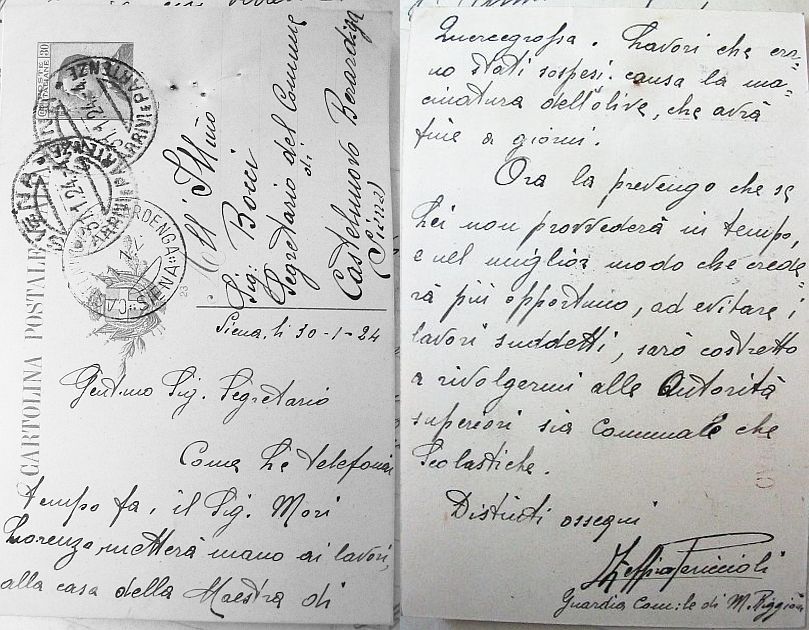 POSTE ITALIANE 30
CARTOLINA POSTALE
ARRIVI E PARTENZE
SIENA
ARRIVI E PARTENZE
SIENA
23
All' Ill:mo
Sig: Bocci
Segretario del Comune
di
Castelnuovo Berardenga
(Siena)
Siena, li 30-1-24
Gent:mo Sig. Segretario
Come Le telefonai
tempo fa, il Sig. Mori
Lorenzo, metterà mano ai lavori,
alla casa della Maestra di
Quercegrossa. Lavori che era-
no stati sospesi causa la ma-
cinatura dell'olive, che avrà
fine a giorni.
Ora la prevengo che se
Lei non provvederà in tempo,
e nel miglior modo che crede-
rà più opportuno, ad evitare i
lavori suddetti, sarò costretto
a rivolgermi alle Autorità
superiori sia Comunale che
Scolastiche.
Distinti ossequi
Periccioli
Guardia Com:le di M. Riggioni